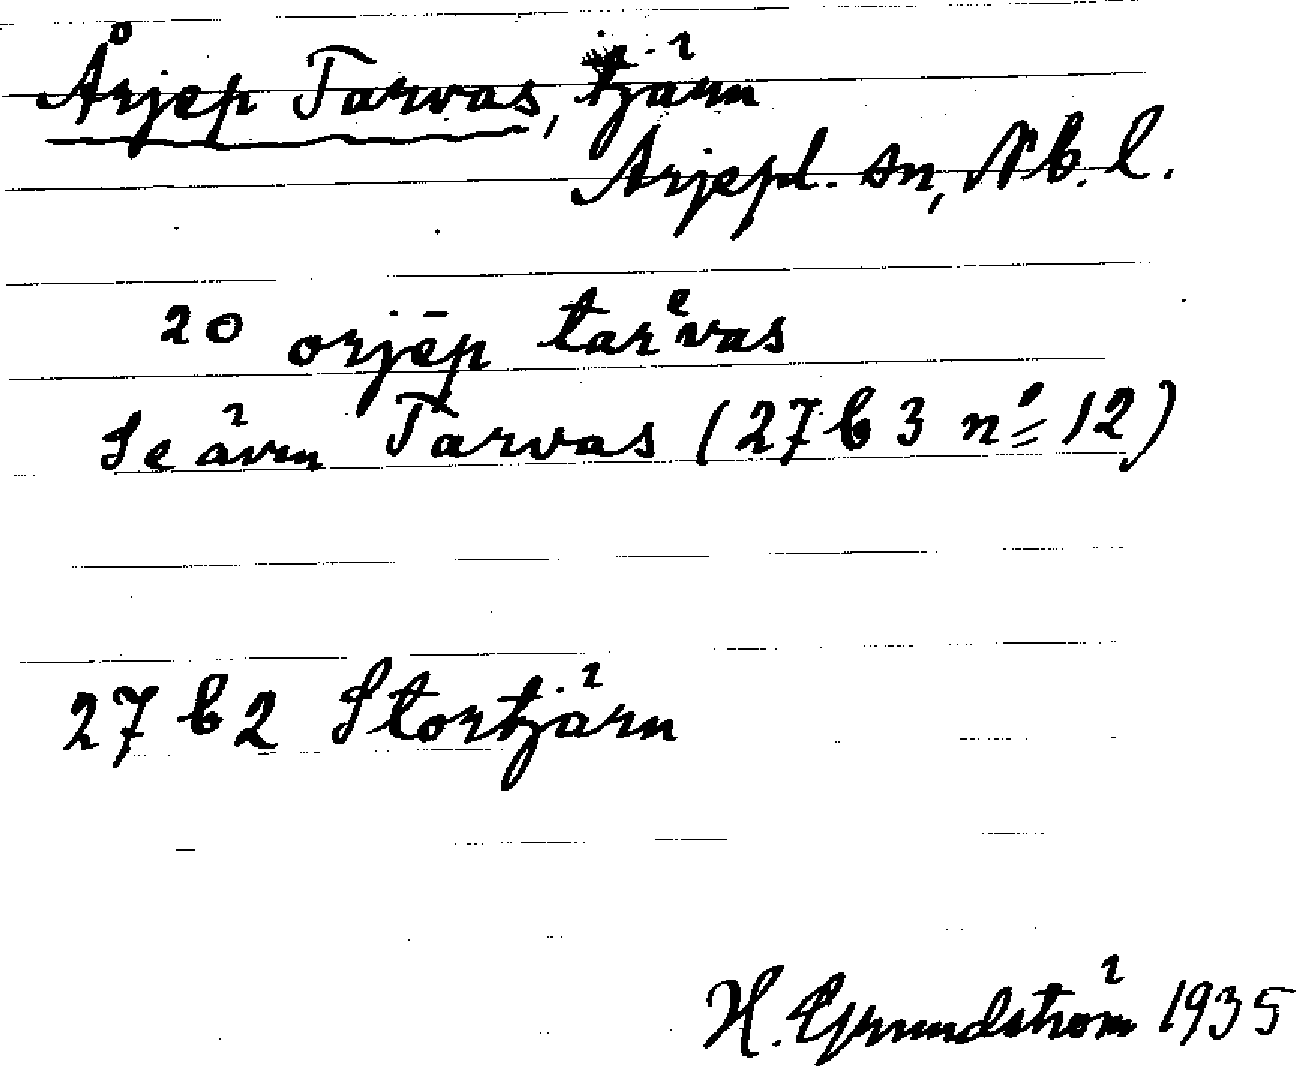 Årjep Tarvas, tjärn
Arjepl. sn, Nb. l.
20 orjēp tarᵉvas
Se även Tarvas (27 b 3 nº 12)
27 b 2 Stortjärn
H. Grundström 1935